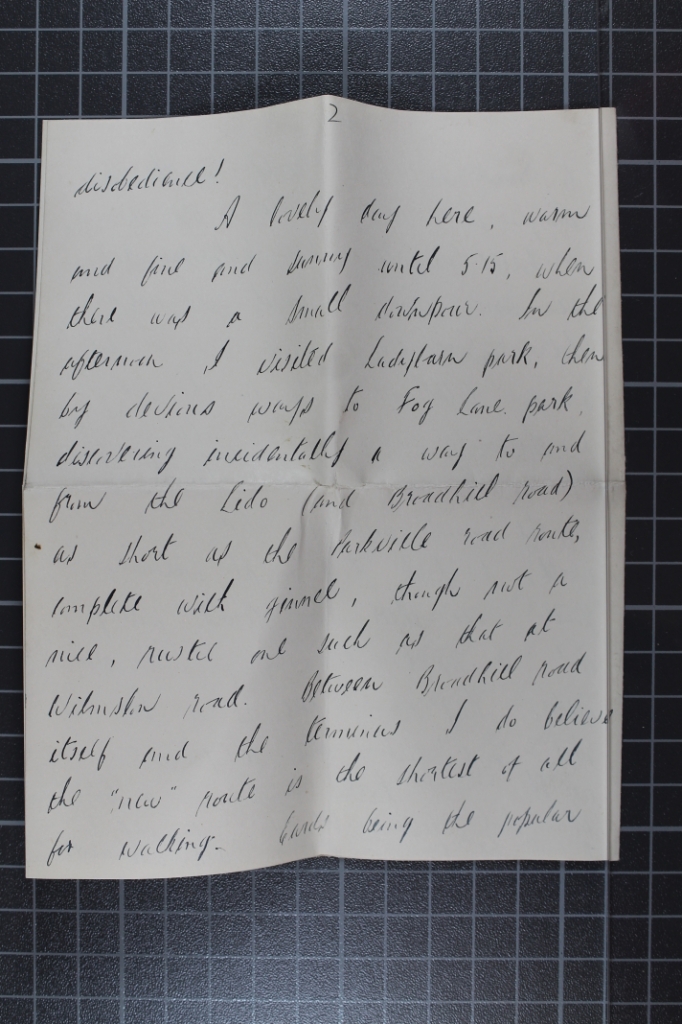 2
disobedience!
A lovely day here, warm
and fine and sunny until 5.15, when
there was a small downpour. In the
afternoon I visited Ladybarn park, then
by devious ways to Fog Lane park,
discovering incidentally a way to and
from the Lido (and Broadhill road)
as short as the Parkville road route,
complete with ginnel, though not a
nice, rustic one such as that at
Wilmslow road. Between Broadhill road
itself and the terminus I do believe
the "new" route is the shortest of all
for walking. being the popular